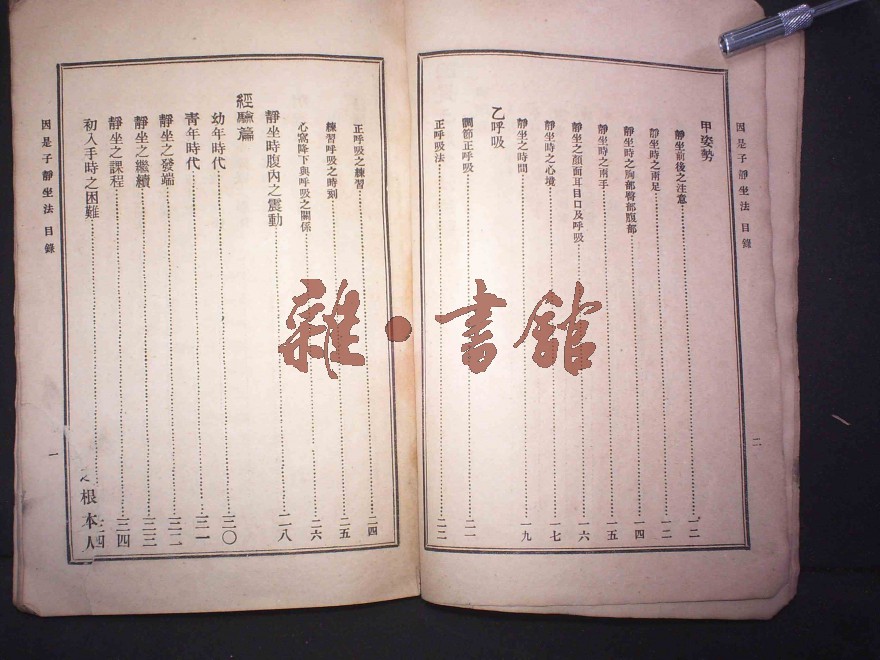 因是子靜坐法 目錄
二
甲姿勢
靜坐前後之注意 一二
靜坐時之兩足 一二
靜坐時之胸部臀部腹部 一四
靜坐時之兩手 一五
靜坐之顏面耳目口及呼吸 一六
靜坐時之心境 一七
靜坐之時間 一九
乙呼吸
調節正呼吸 二一
正呼吸法 二二
正呼吸之練習 二四
練習呼吸之時刻 二五
心窩降下與呼吸之關係 二六
靜坐時腹內之震動 二八
經驗篇
幼年時代 三〇
青年時代 三一
靜坐之發端 三二
靜坐之繼續 三三
靜坐之課程 三四
初入手時之困難 四
根本人
因是子靜坐法 目錄
一
雜·書館